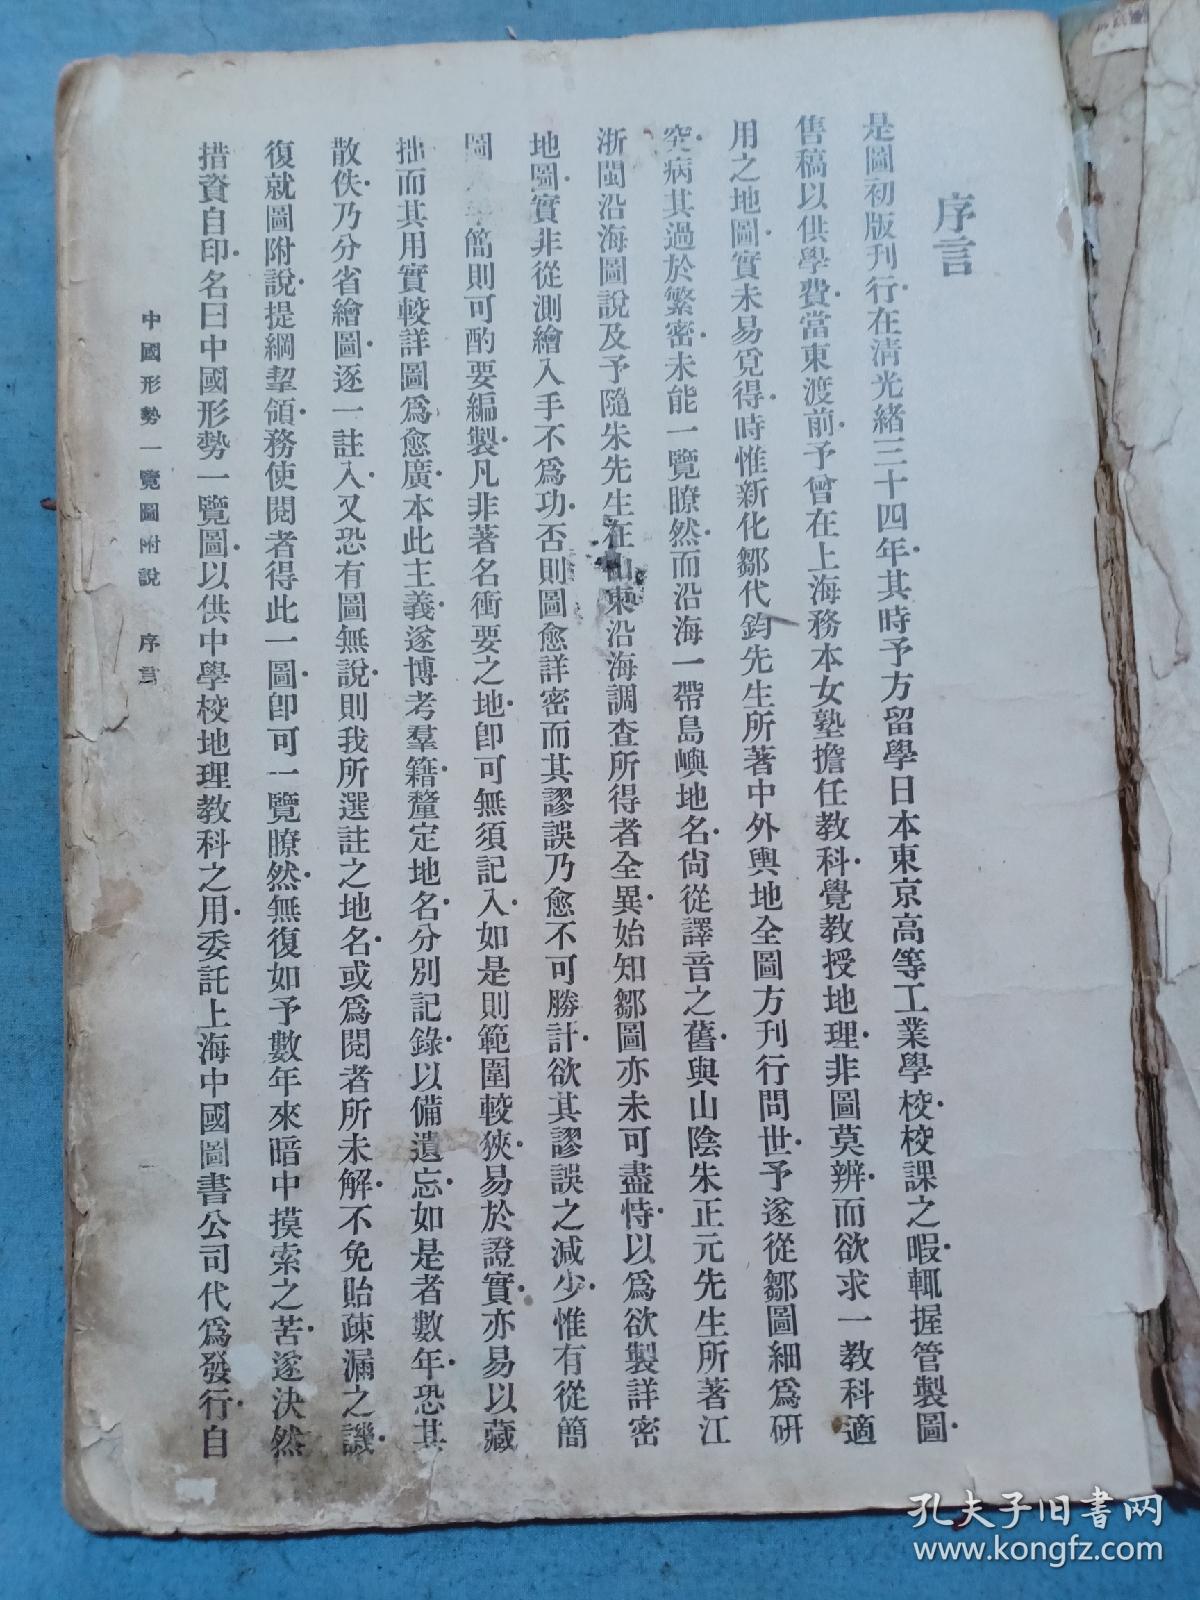 序言
是圖初版刊行在清光緒三十四年其時予方留學日本東京高等工業學校校課之暇輒握管製圖
售稿以供學費當東渡前予曾在上海務本女塾擔任教科覺教授地理非圖莫辨而欲求一教科適
用之地圖實未易覓得時惟新化鄒代鈞先生所著中外輿地全圖方刊行問世予遂從鄒圖細爲研
究病其過於繁密未能一覽瞭然而沿海一帶島嶼地名尙從譯音之舊與山陰朱正元先生所著江
浙閩沿海圖說及予隨朱先生在山東沿海調查所得者全異始知鄒圖亦未可盡恃以爲欲製詳密
地圖實非從測繪入手不爲功否則圖愈詳密而其謬誤乃愈不可勝計欲其謬誤之減少惟有從簡
圖簡則可酌要編製凡非著名衝要之地卽可無須記入如是則範圍較狹易於證實亦易以藏
拙而其用實較詳圖爲愈廣本此主義遂博考羣籍釐定地名分別記錄以備遺忘如是者數年恐其
散佚乃分省繪圖逐一註入又恐有圖無說則我所選註之地名或爲閱者所未解不免貽疎漏之譏
復就圖附說提綱挈領務使閱者得此一圖卽可一覽瞭然無復如予數年來暗中摸索之苦遂決然
措資自印名曰中國形勢一覽圖以供中學校地理教科之用委託上海中國圖書公司代爲發行自
中國形勢一覽圖附說 序言
孔夫子旧书网
www.kongfz.com